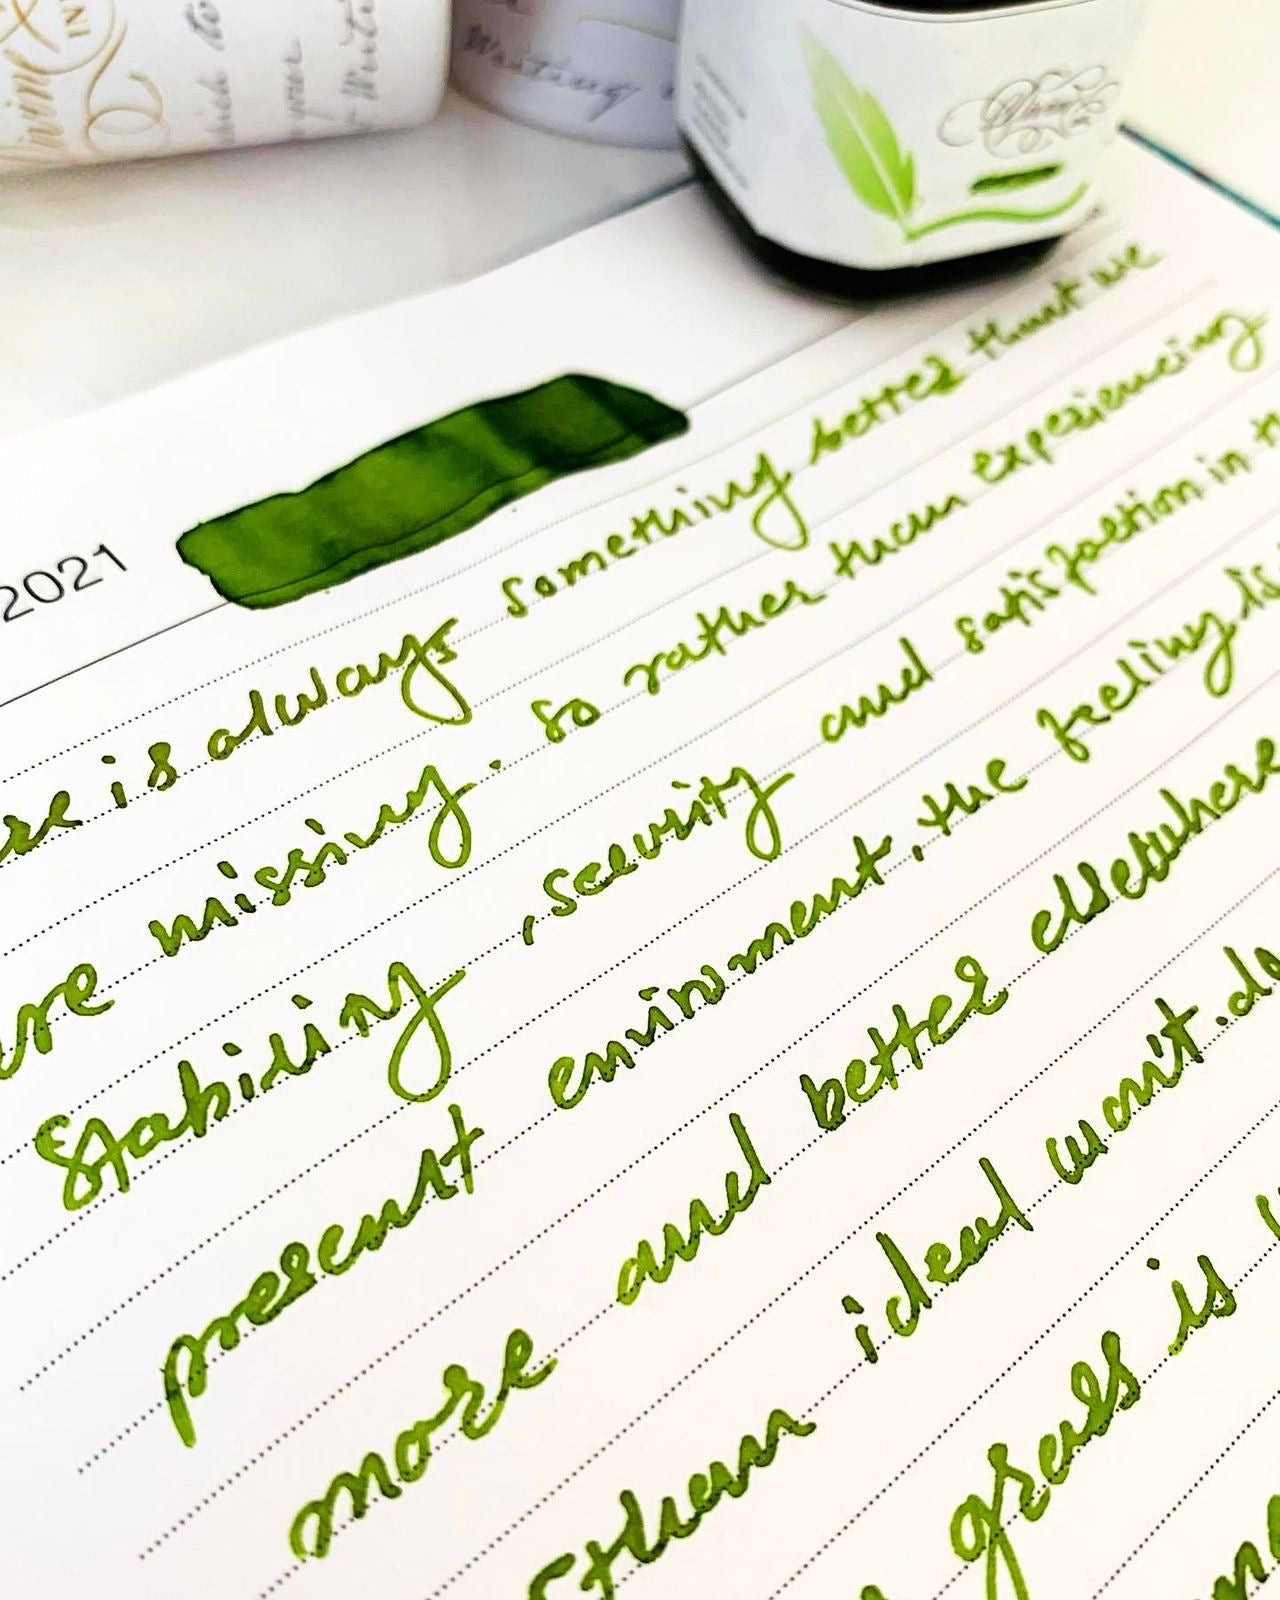 Writing
2021
is always something better that we
are missing. so rather than experiencing
stability, security and satisfaction in
present environment, the feeling is
more and better elsewhere
than ideal won't. do
grass is